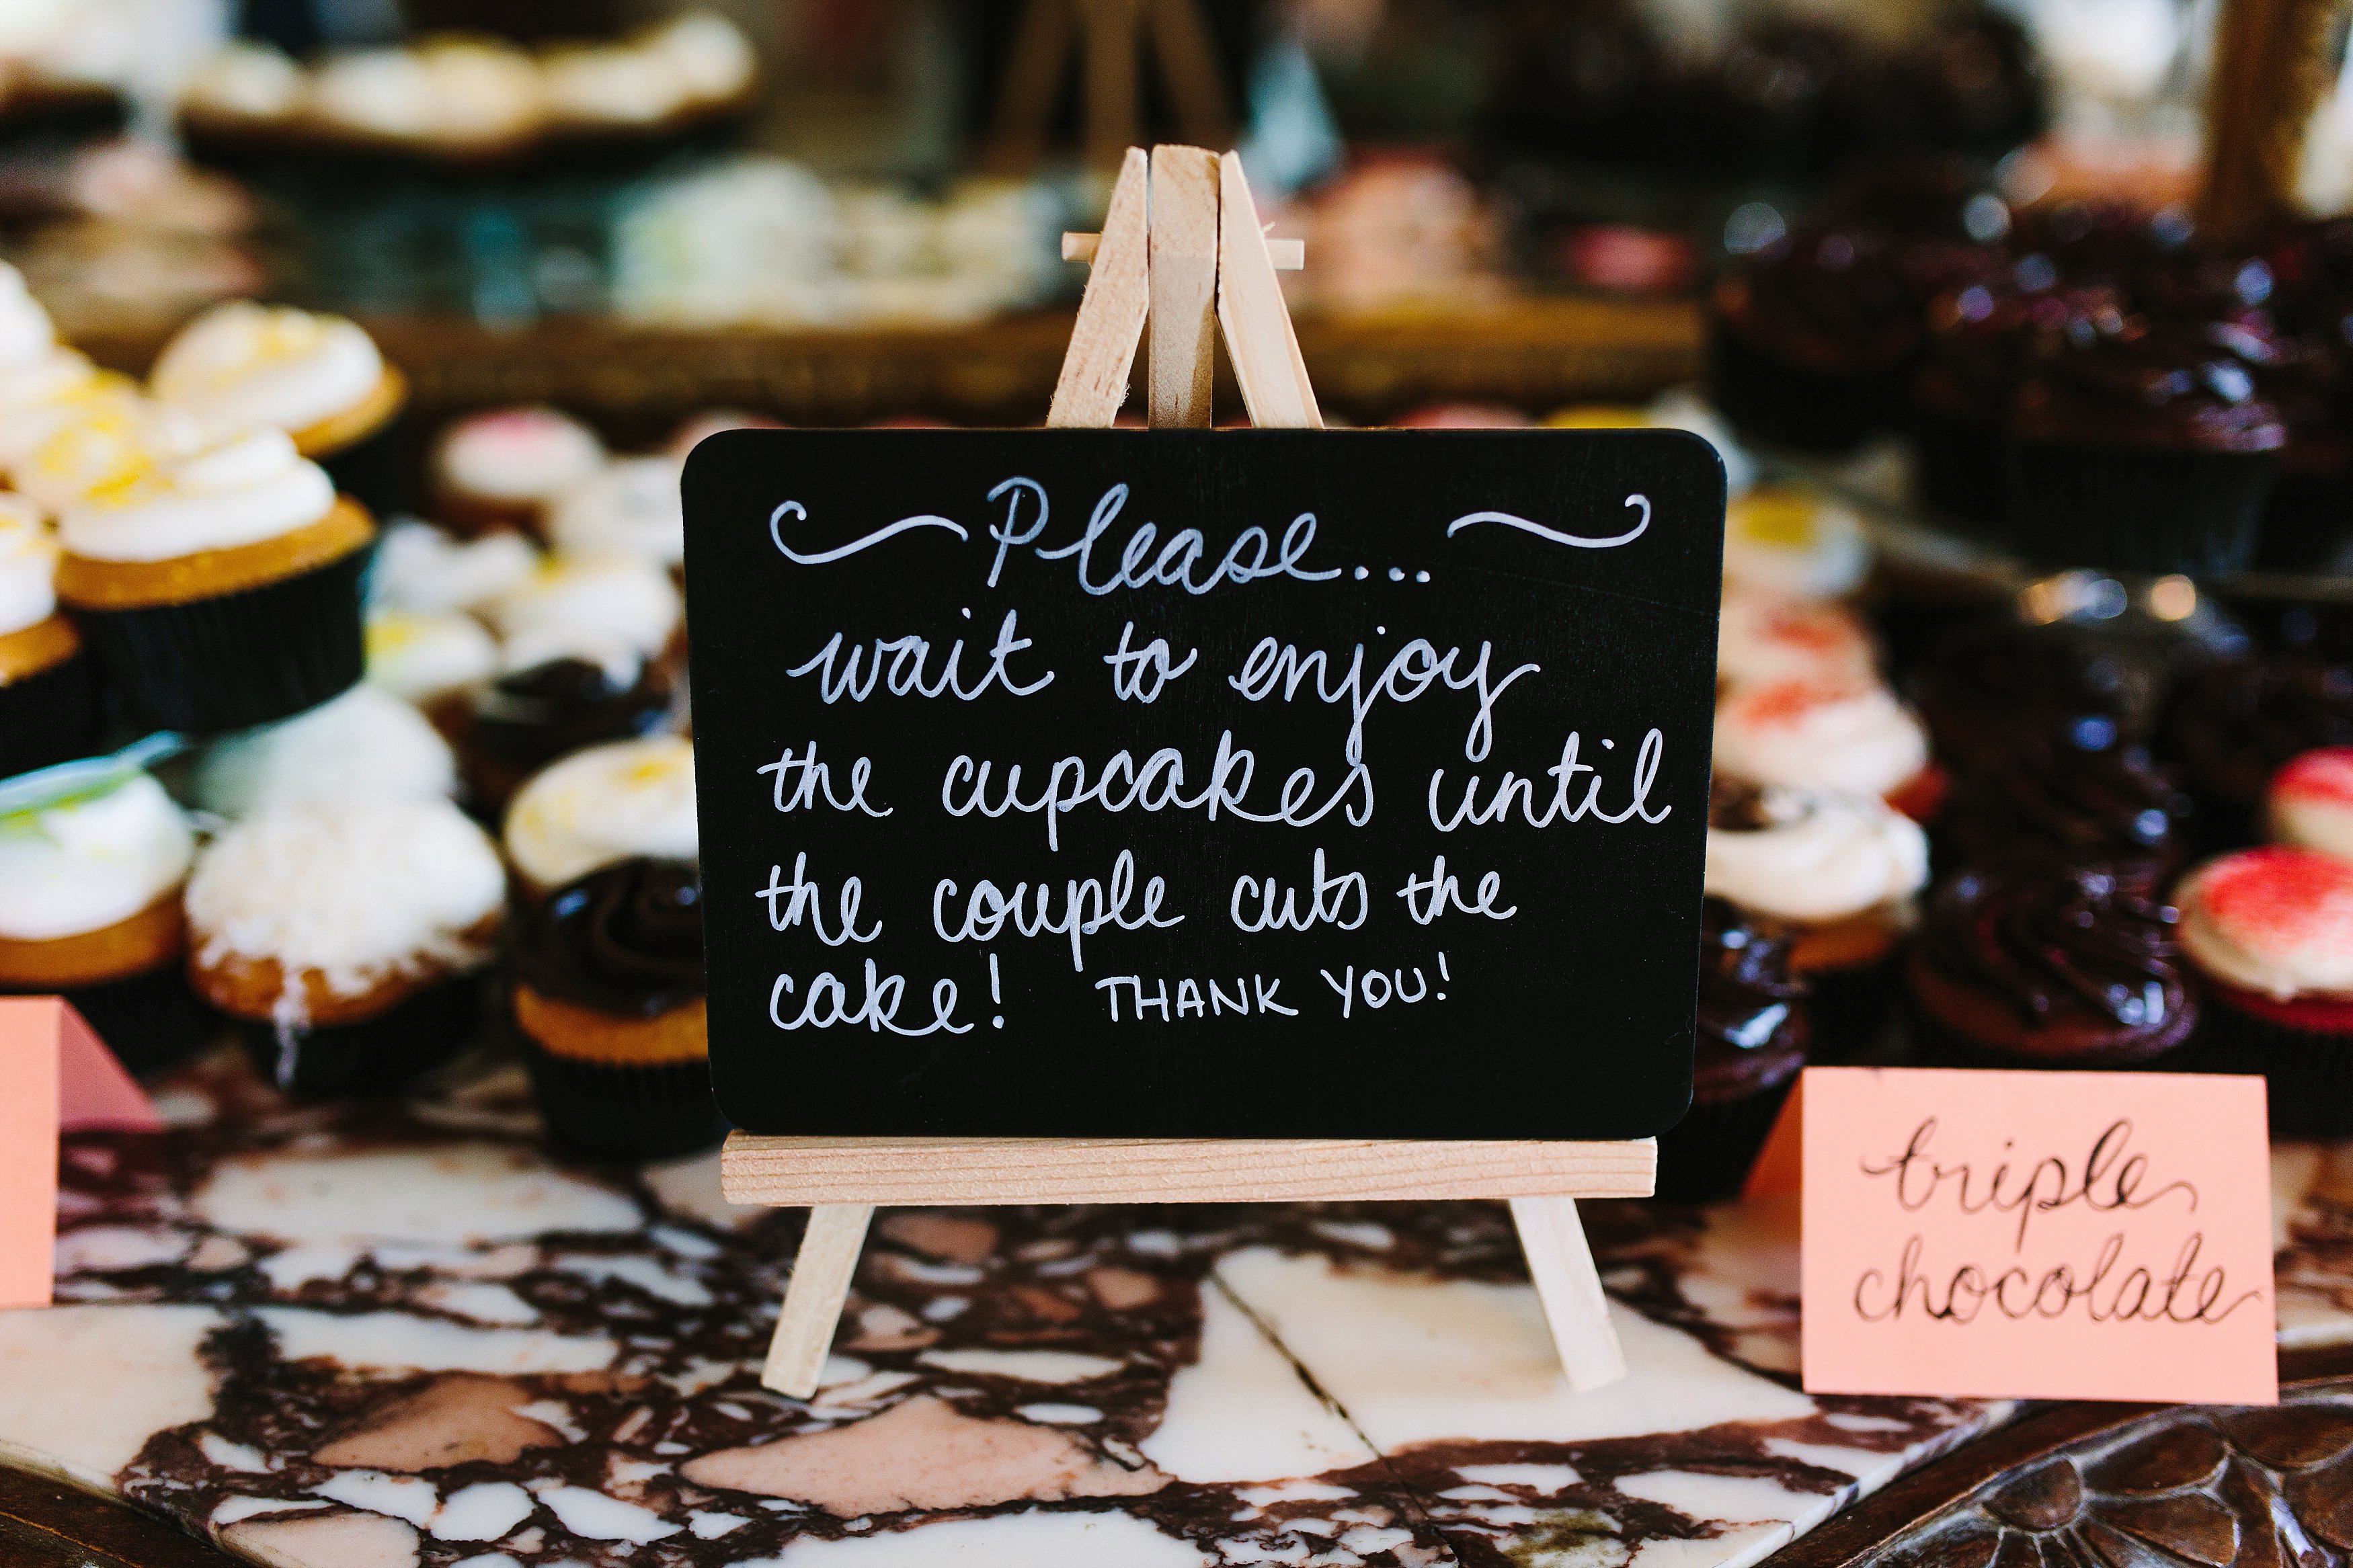 Please...
wait to enjoy
the cupcakes until
the couple cuts the
cake! THANK YOU!
triple
chocolate